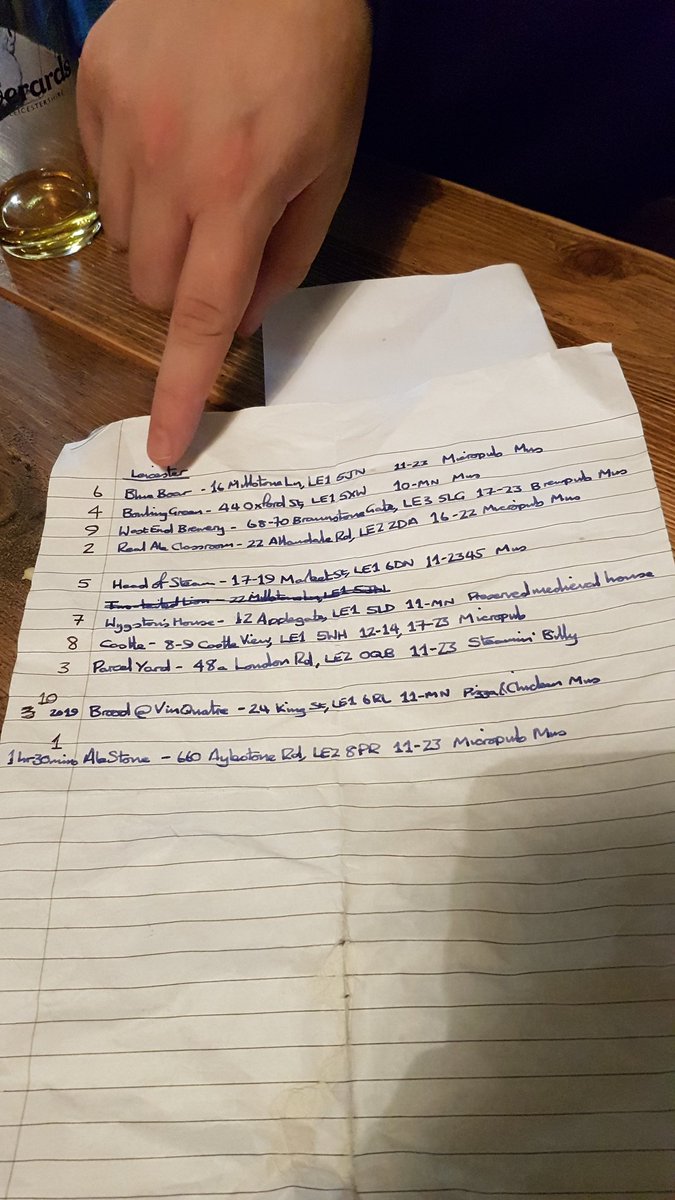 erards
LEICESTERSHIRE
Leicester
6 Blue Boar - 16 Millstone Ln, LE1 5JN 11-23 Micropub Mus
4 Bowling Green - 44 Oxford St, LE1 5XW 10-MN Mus
9 West End Brewery - 68-70 Braunstone Gate, LE3 5LG 17-23 Brewpub Mus
2 Real Ale Classroom - 22 Allandale Rd, LE2 2DA 16-22 Micropub Mus
5 Head of Steam - 17-19 Market St, LE1 6DN 11-2345 Mus
Two-tailed Lion - 22 Millstone Ln, LE1 5JN
7 Wygston's House - 12 Applegate, LE1 5LD 11-MN Preserved medieval house
8 - 8-9 View, LE1 5WH 12-14, 17-23 Micropub
3 Parcel Yard - 48a London Rd, LE2 0QB 11-23 Steamin' Billy
10
3 2019 Brood @ VinQuatre - 24 King St, LE1 6RL 11-MN Pizza & Chicken Mus
1
1hr30mins AleStone - 660 Aylestone Rd, LE2 8PR 11-23 Micropub Mus